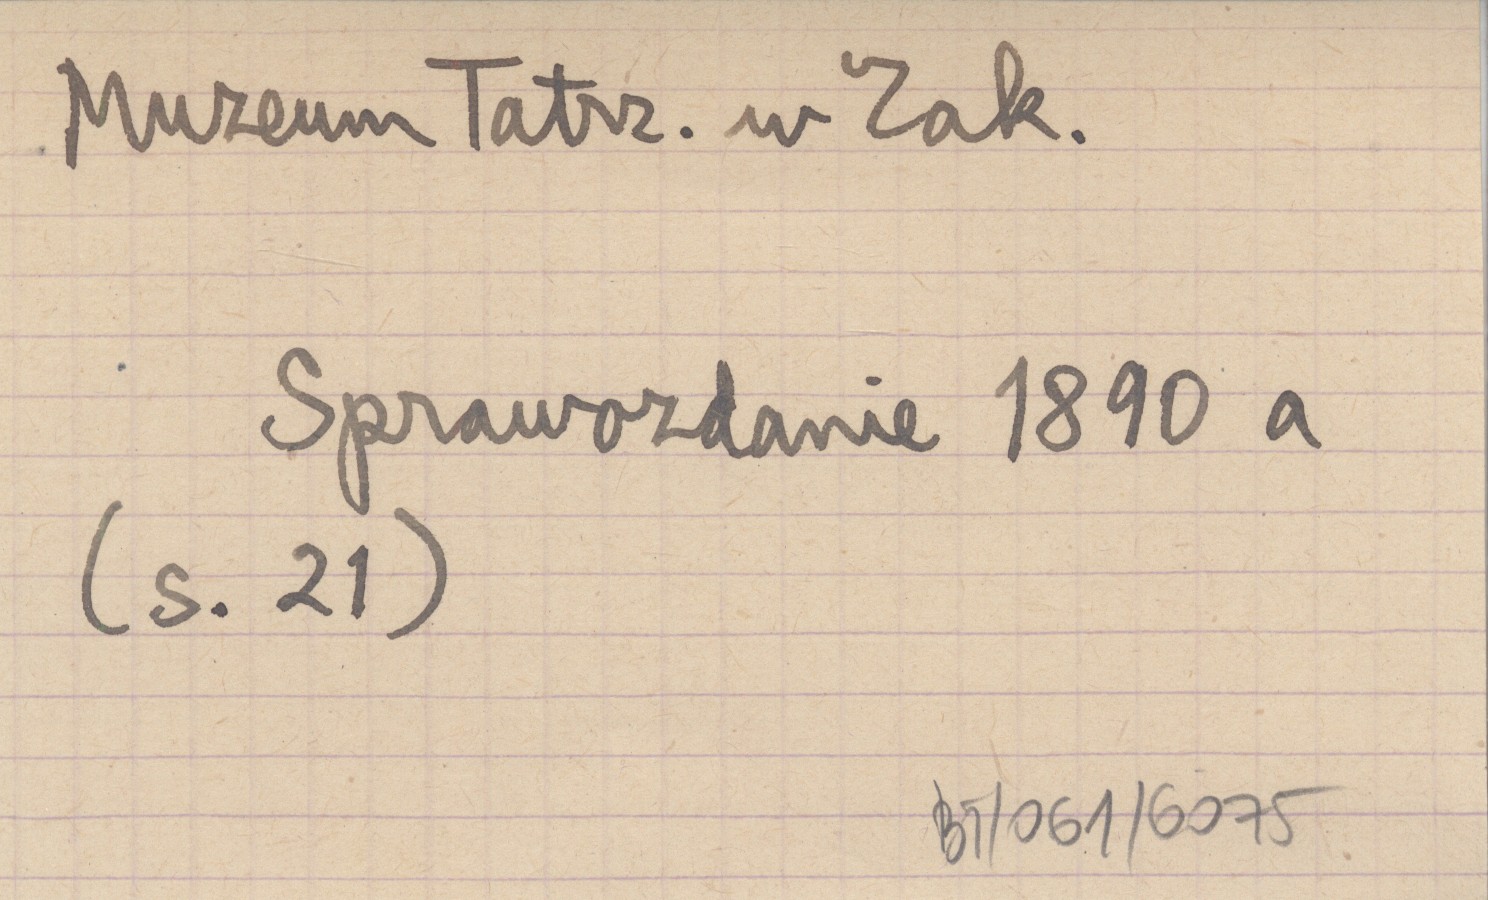 Muzeum Tatrz. w Zak.
Sprawozdanie 1890 a
(s. 21)
BT/061/6075